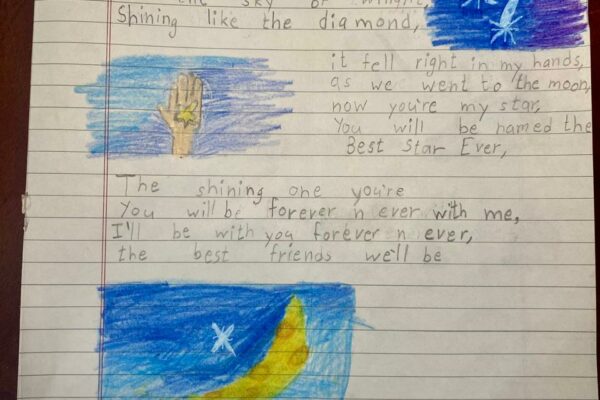 the sky
Shining like the diamond,
it fell right in my hands,
as we went to the moon,
now you're my star,
You will be named the
Best Star Ever,
The shining one you're
You will be forever n ever with me,
I'll be with you forever n ever,
the best friends we'll be